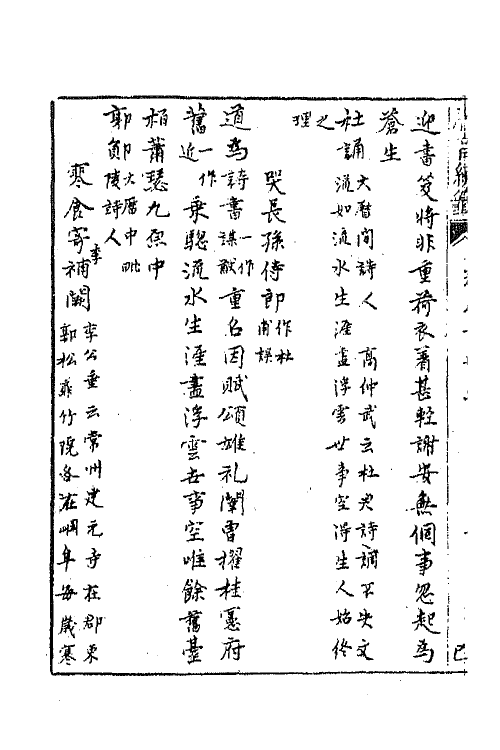 迎書笈將非重荷衣著甚輕謝安無個事忽起為
蒼生
杜誦 大曆間詩人 高仲武云杜君詩調不失文
流如流水生涯盡浮雲世事空得生人始終
之理
哭長孫侍郎 一作杜甫誤
道為詩書 一作謀猷 重名因賦頌雄礼闈曾擢桂憲府
舊 一作近 乘驄流水生涯盡浮雲世事空唯餘舊臺
柏蕭瑟九原中
郭鄖 大曆中毗陵詩人
寒食寄李補闕 李公垂云常州建元寺在郡東
郭松竹院各在岡阜每歲寒